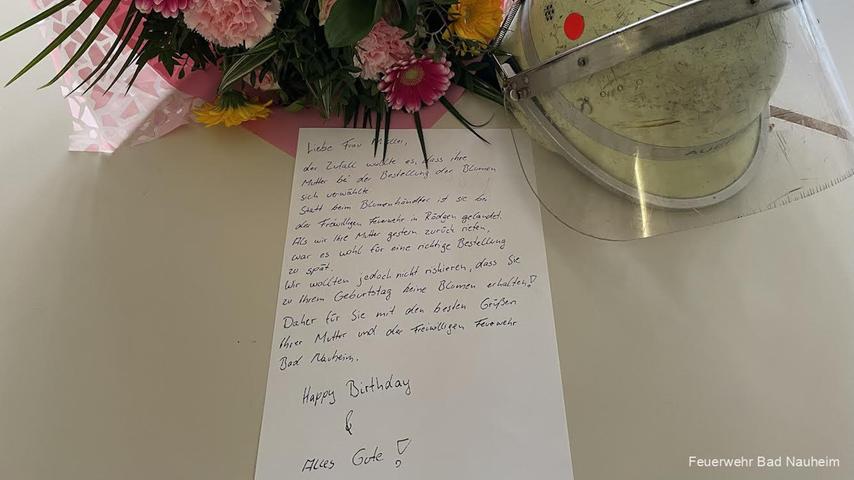 Liebe Frau Müller,
der Zufall wollte es, dass ihre
Mutter bei der Bestellung der Blumen
sich verwählte
Statt beim Blumenhändler ist sie bei
der Freiwilligen Feuerwehr in Rödgen gelandet.
Als wir Ihre Mutter gestern zurück riefen,
war es wohl für eine richtige Bestellung
zu spät.
Wir wollten jedoch nicht riskieren, dass Sie
zu Ihrem Geburtstag keine Blumen erhalten!
Daher für Sie mit den besten Grüßen
Ihrer Mutter und der Freiwilligen Feuerwehr
Bad Nauheim.
Happy Birthday
&
Alles Gute!
Feuerwehr Bad Nauheim